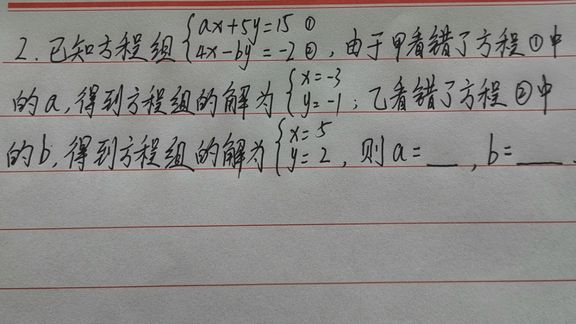 2. 已知方程组 { ax+5y=15 ①
4x-by=-2 ② , 由于甲看错了方程①中
的a, 得到方程组的解为 { x=-3
y=-1 ; 乙看错了方程②中
的b, 得到方程组的解为 { x=5
y=2 , 则a=__ , b=___ .